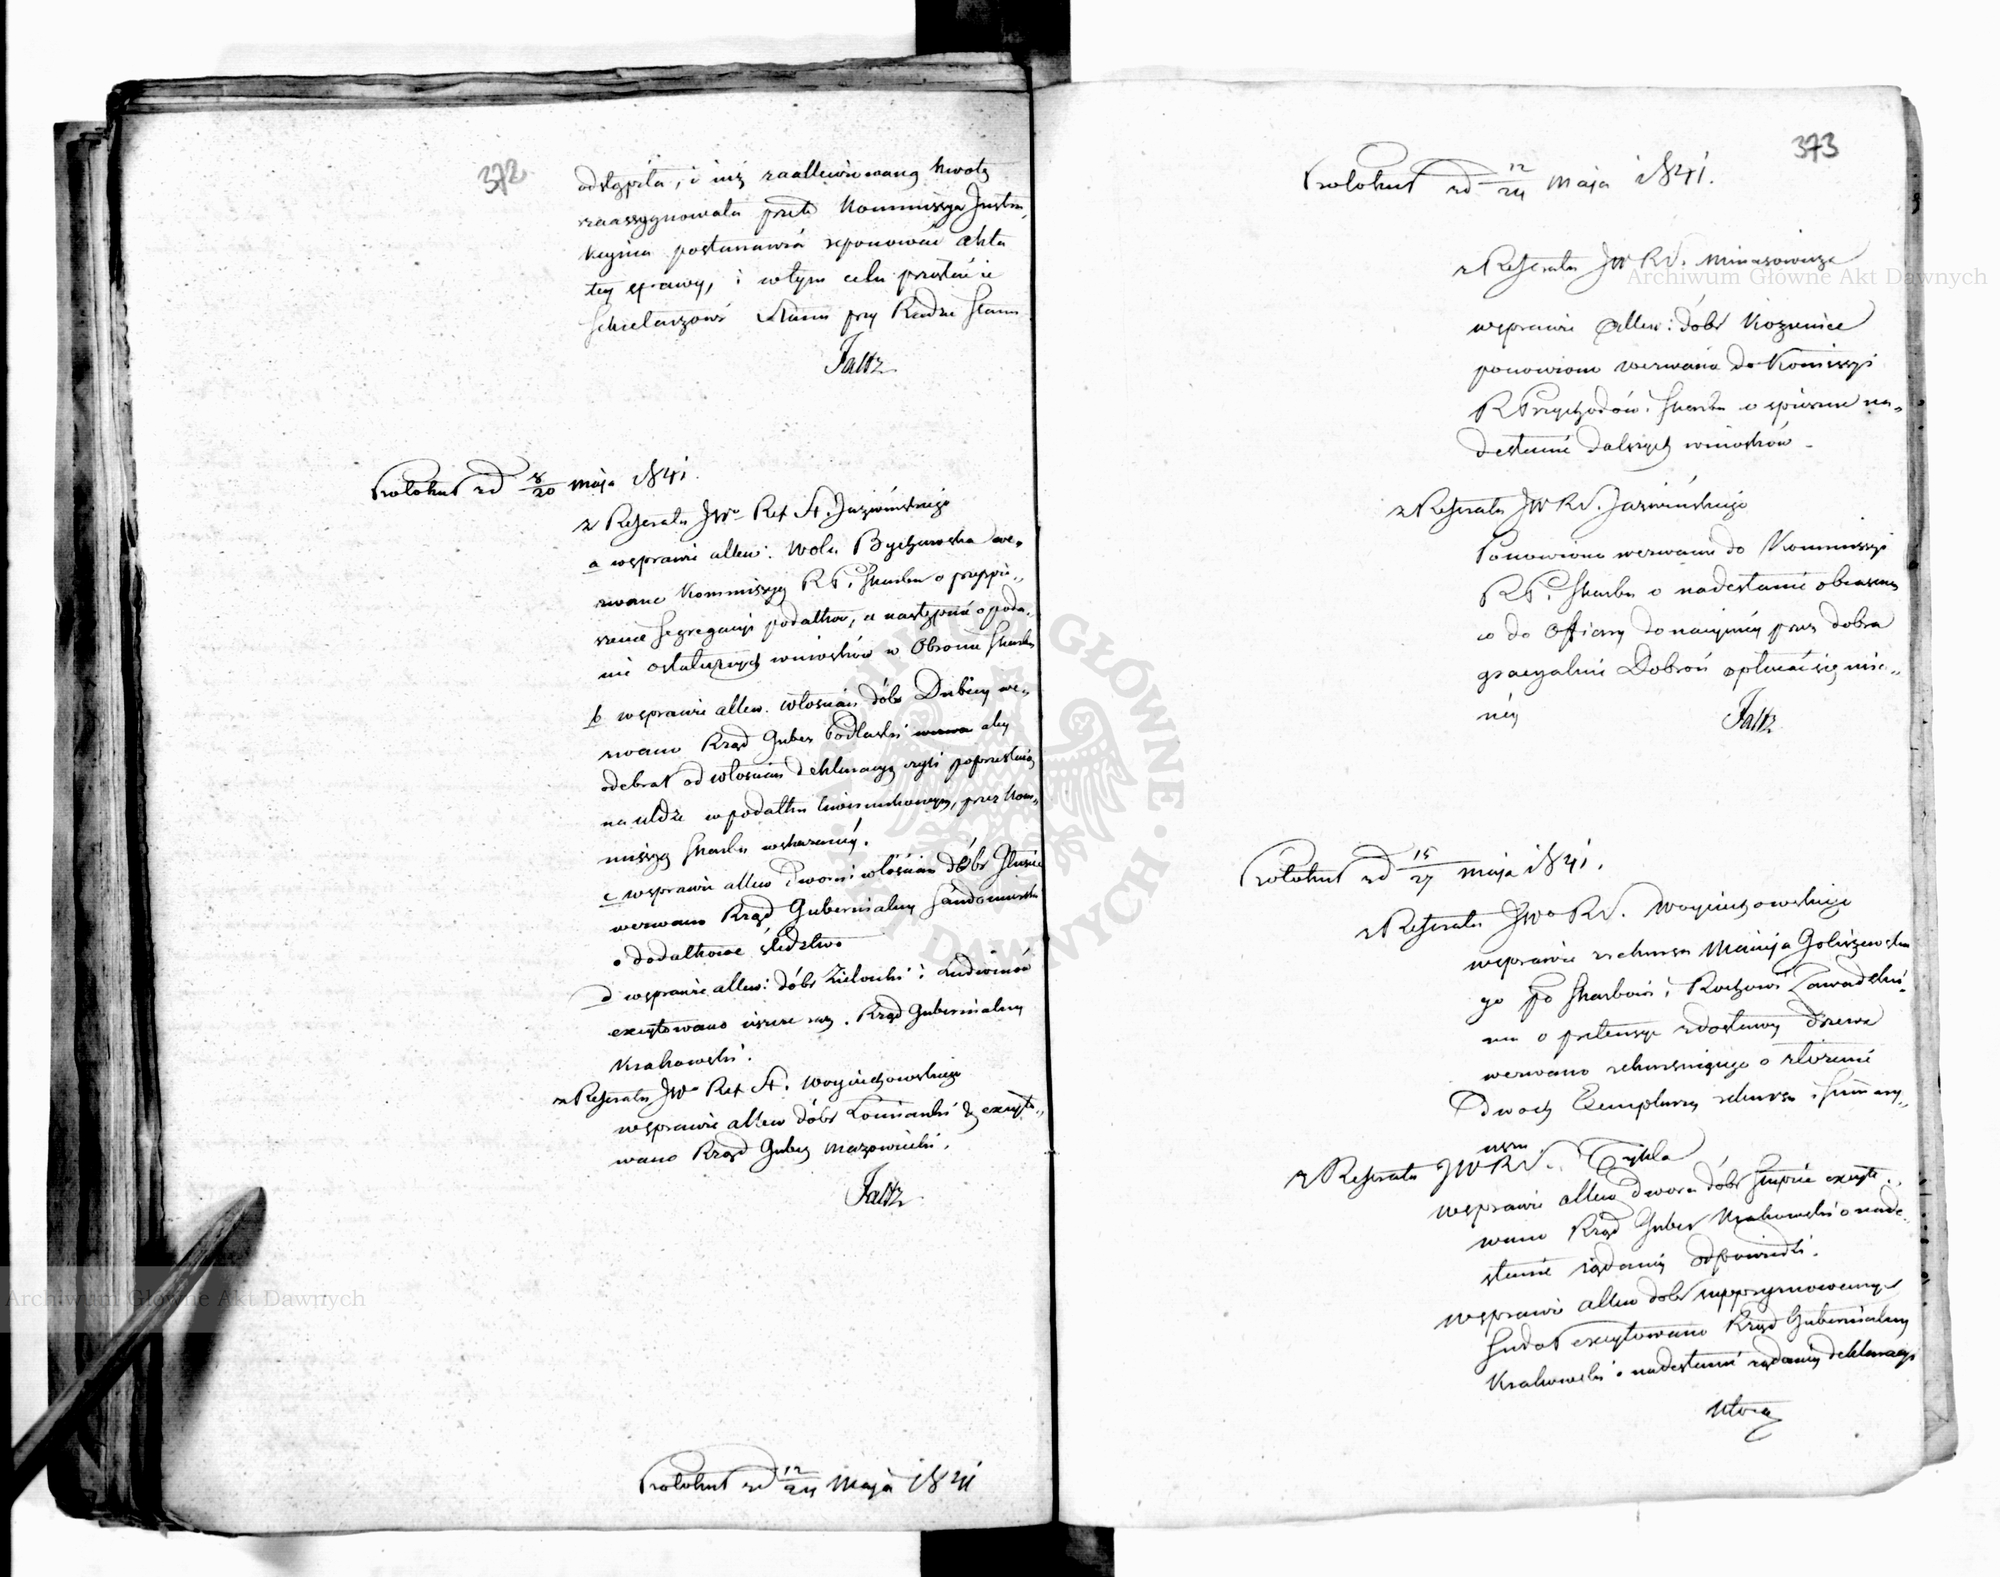 372
odstąpiła, i inż zaallewiowaną kwotę
zaassygnowała przeto Kommissya Instru
kcyjna postanawia reponować akta
tey sprawy, i w tym celu przesłać ie
Sekretarzowi Stanu przy Radzie Stanu
Faltz
Protokuł zd 8/20 maja 1841.
z Referatu JWo Ref St. Jaźwińskiego
a w sprawie allew: Wola Bychawska we„
zwano Kommissyą R P. Skarbu o przyspie„
szenie segregacyi podatków, a następnie o poda„
nie ostatecznych wniosków w Obronie Skarbu
b w sprawie allew. włościan dóbr Dubicy we„
zwano Rząd Guber Podlaski aby
odebrał od włościan deklaracyą czyli poprzestaią
na uldze w podatku liwerunkowym, przez Kom„
missyą Skarbu wskazaney.
c w sprawie allew Dworu i włościan dóbr
wezwano Rząd Gubernialny Sandomierski
o dodatkowe śledztwo
d w sprawie allew: dóbr Zielonki i Ludwinów
excytowano ieszcze raz. Rząd Gubernialny
Krakowski.
z Referatu JWo Ref St. Woyciechowskiego
w sprawie allew dóbr Łomianki excyto„
wano Rząd Guber Mazowiecki.
Faltz
Protokuł zd 12/24 Maja 1841
373
Protokuł zd 12/24 Maja 1841.
Archiwum Główne Akt Dawnych
z Referatu JW RS. Minasowicza
w sprawie allew: dóbr Kozienice
ponowiono wezwanie do Komissyi
R Przychodów i Skarbu o spieszne na„
desłanie dalszych wniosków
z Referatu JW RS. Jaźwińskiego
Ponowiono wezwanie do Kommissyi
RP. Skarbu o nadesłanie obiasnienia
co do Offiary donacyiney przez dobra
gracyalne Dobroń opłacać się mia„
ney
Faltz
Protokuł zd 15/27 maja 1841.
z Referatu JWo RS. Woyciechowskiego
w sprawie rekursu Macieja Goliszewskie
go po Skarbowi i Rochowi Zawadzkie„
mu o pretensye z dostawy drzewa
wezwano rekurruiącego o złożenie
Dwoch Exemplarzy rekursu i Summary„
usu
z Referatu JW RS. Tykla
w sprawie allew Dworu dóbr Słupcia excyto„
wano Rząd Guber Krakowski o nade„
słanie rządaney odpowiedzi.
w sprawie allew dóbr supprymowanych
Sudoł excytowano Rząd Gubernialny
Krakowski o nadesłanie rządaney deklaracyi
Archiwum Główne Akt Dawnych
ARCHIWUM GŁÓWNE AKT DAWNYCH